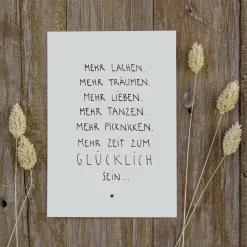 MEHR LACHEN.
MEHR TRÄUMEN.
MEHR LIEBEN.
MEHR TANZEN.
MEHR PICKNICKEN.
MEHR ZEIT ZUM
GLÜCKLICH
SEIN...